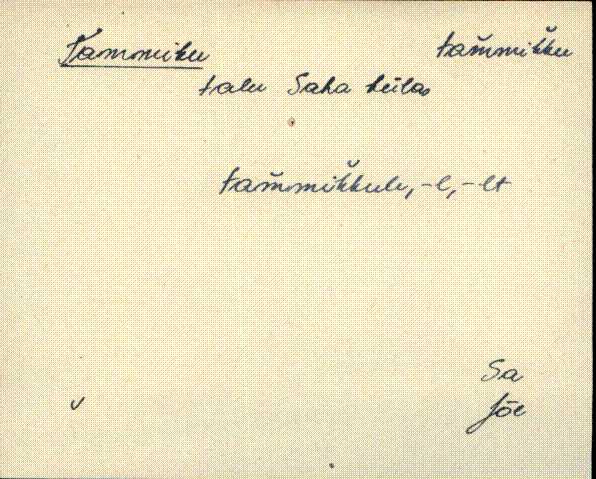 Tammiku tam̆mik̆ku
talu Saha külas
tam̆mik̆kule, -l, -lt
Sa
v Jõe